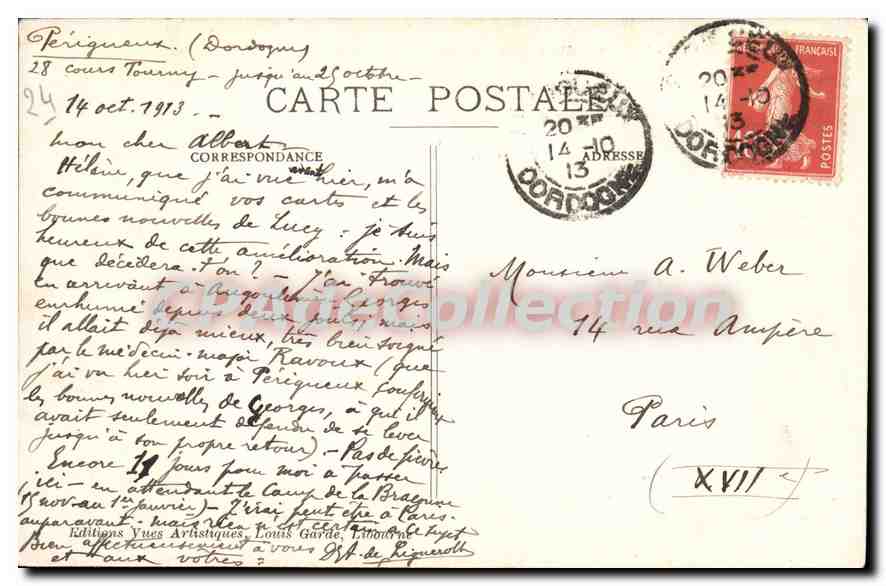 Périgueux. (Dordogne)
28 cours Tourny - jusqu'au 25 octobre -
24
14 oct. 1913. -
CARTE POSTALE
mon cher Albert
CORRESPONDANCE
ADRESSE
Hélène, que j'ai vue avant hier, m'a
communiqué vos cartes et les
bonnes nouvelles de Lucy : je suis
heureux de cette amélioration. Mais
que décidera-t'on ? - J'ai trouvé
en arrivant à Angoulême Georges
enrhumé depuis deux jours ; mais
il allait déjà mieux, très bien soigné
par le médecin-major Ravoux (que
j'ai vu hier soir à Périgueux
les bonnes nouvelles de Georges, à qui il
avait seulement défendu de se lever
jusqu'à son propre retour) - Pas de fièvre
Encore 11 jours pour moi à passer
ici - en attendant le Camp de la Braconne
(15 nov. au 1er janvier) - J'irai peut être à Paris
auparavant - mais rien n'est certain à ce sujet
Editions Vues Artistiques, Louis Garde, Libourne
Bien affectueusement à vous
et aux vôtres =
Monsieur A. Weber
14 rue Ampère
Paris
(XVIIe)
20
14 -10
13
DORDOGNE
20
14 -10
13
DORDOGNE
FRANÇAISE
POSTES
CPArtCollection